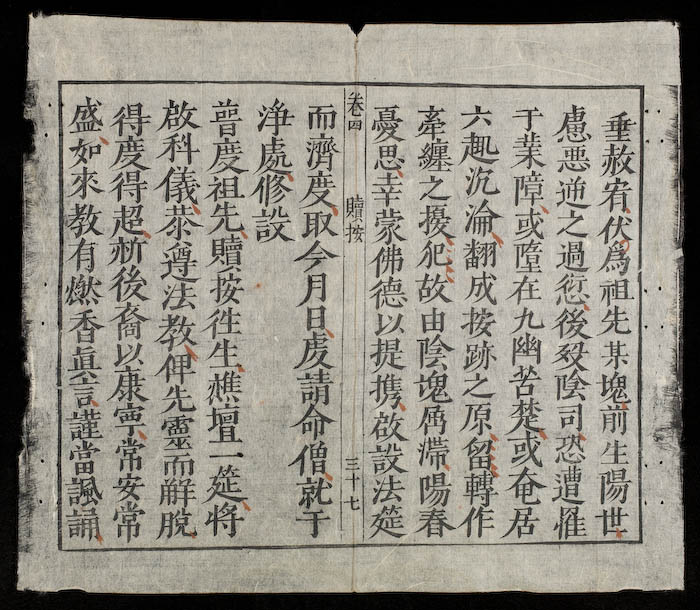 垂赦宥伏爲祖先某塊前生陽世
慮惡逆之過愆後歿陰司恐遭罹
于業障或墮在九幽苦楚或奄居
六趣沉淪翻成按跡之原留轉作
牽纏之擾犯故由陰塊爲滯陽春
憂思幸蒙佛德以提携啟設法筵
卷四 贖按 三十七
而濟度取今月日虔請命僧就于
净處修設
普度祖先贖按徃生醮壇一筵將
啟科儀恭遵法教俾先靈而解脫
得度得超祈後裔以康寧常安常
盛如來教有燃香眞言謹當諷誦